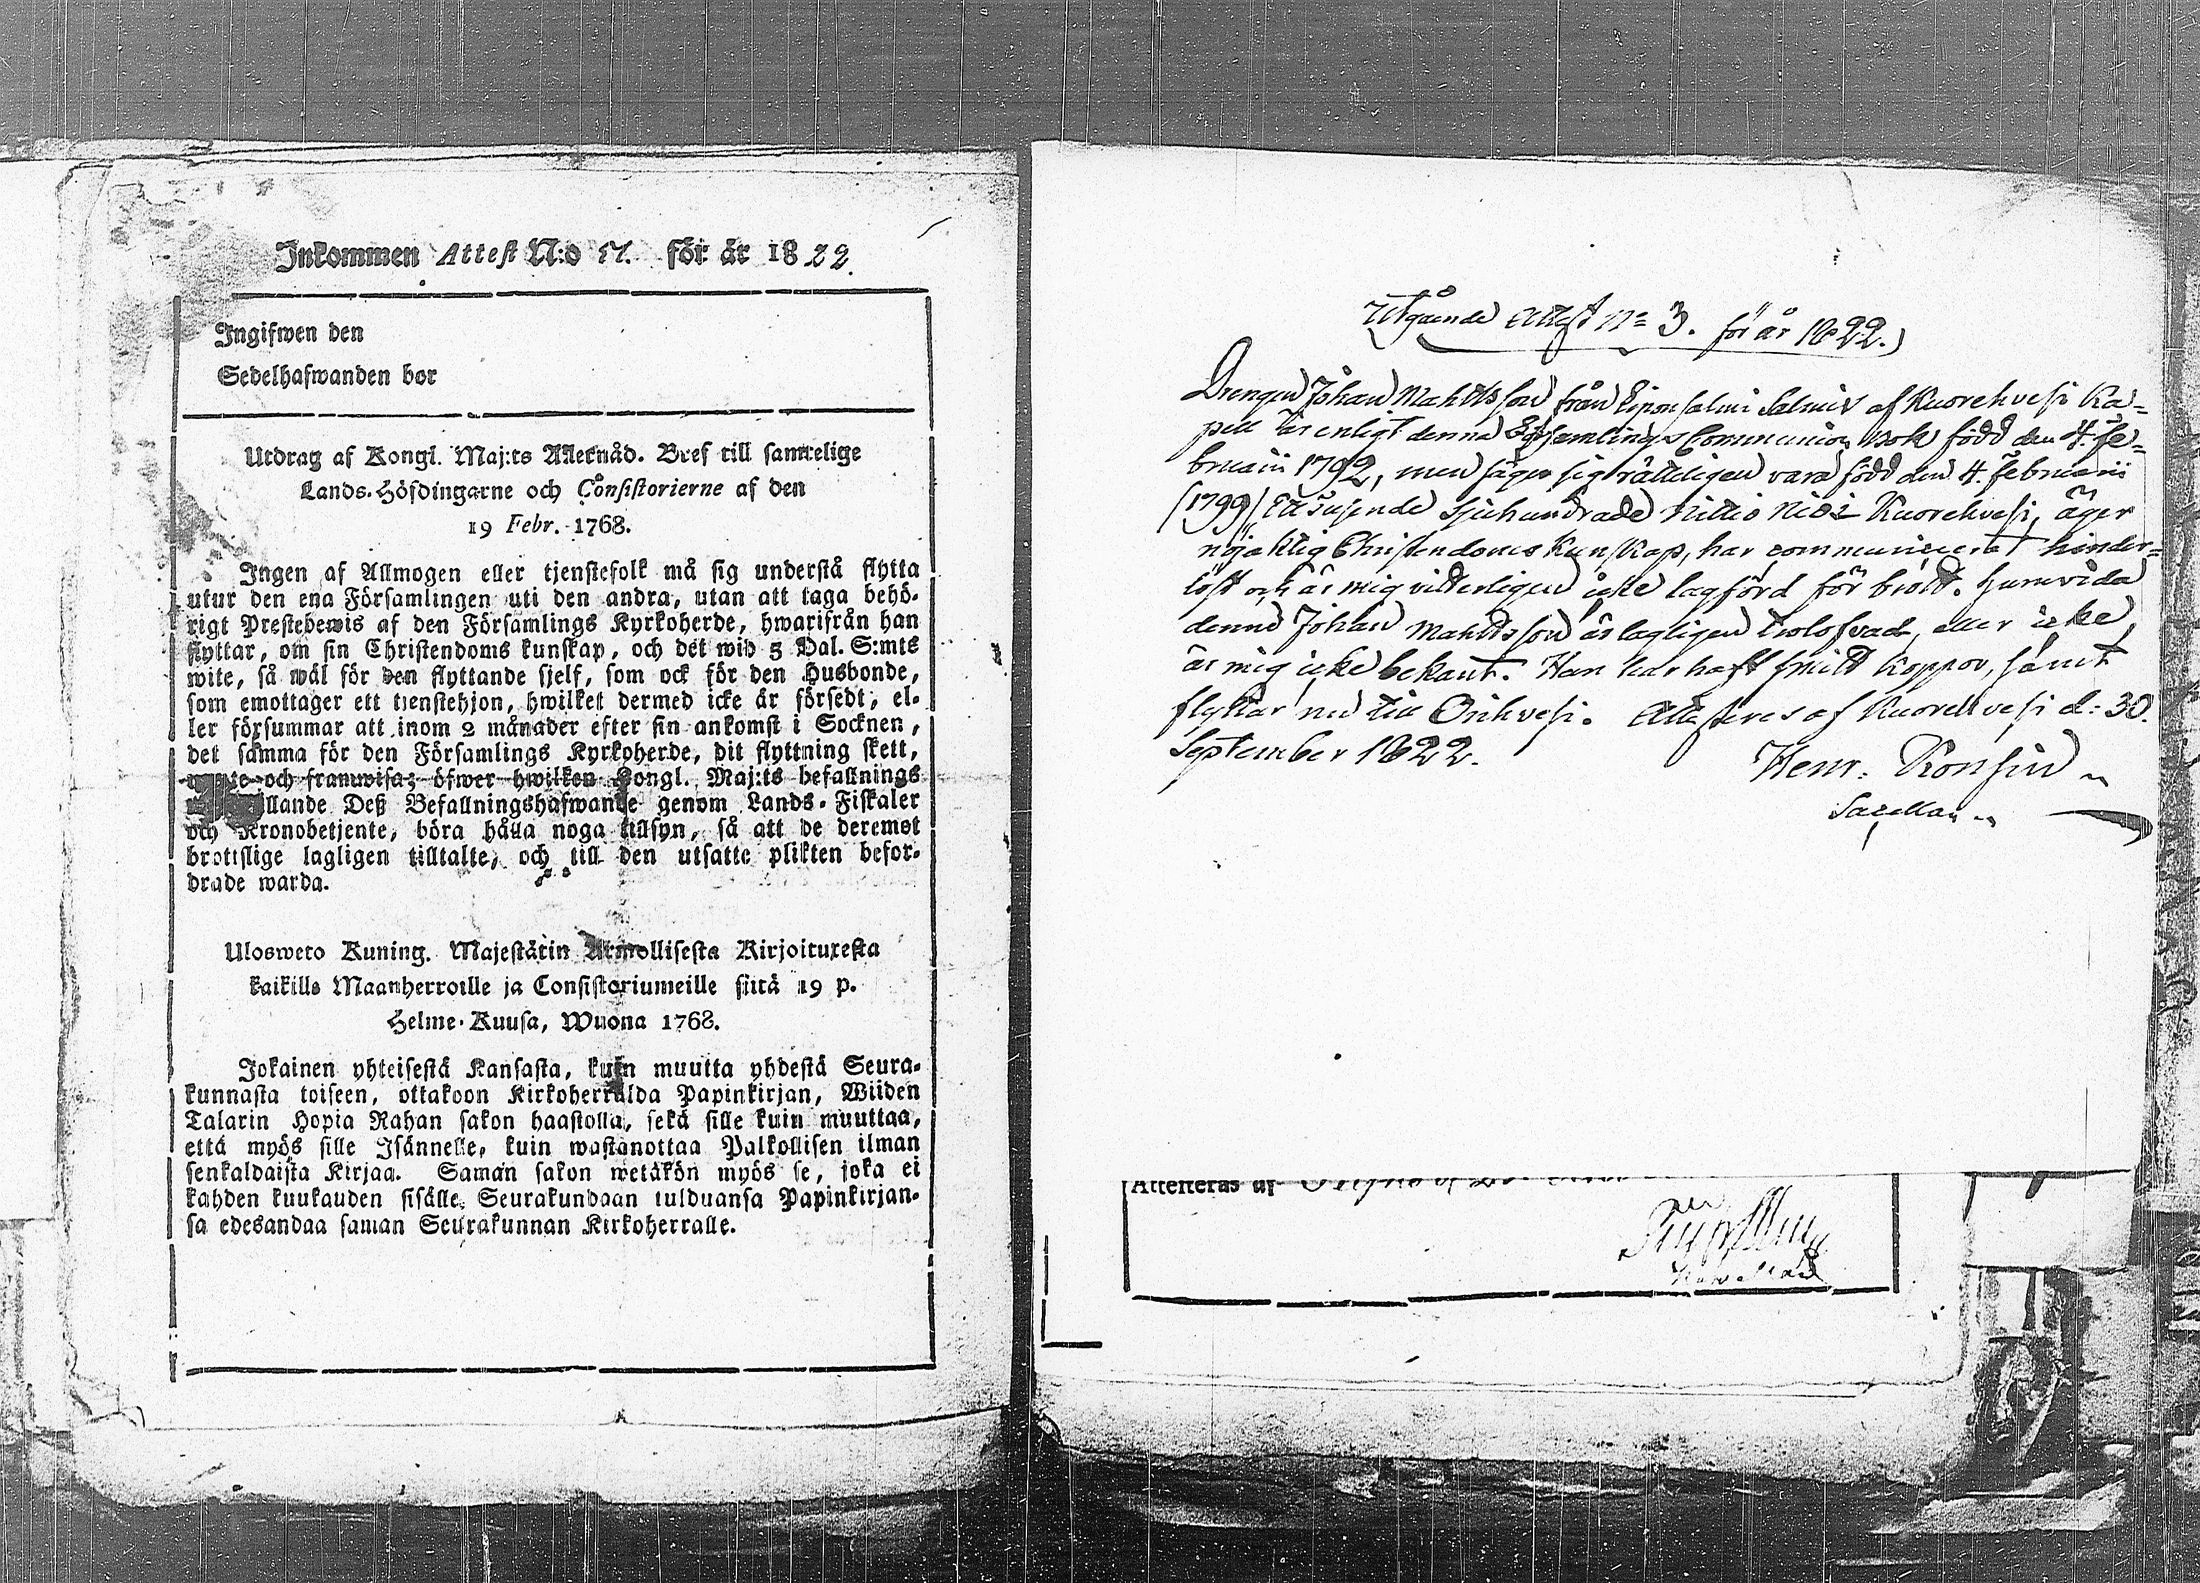 Inkommen Attest N:o 51. för år 1822.
Ingifwen den
Sedelhafwanden bor
Utdrag af Kongl. Maj:ts Allernåd. Bref till samtelige
Lands-Höfdingarne och Consistorierne af den
19 Febr. 1768.
Ingen af Allmogen eller tjenstefolk må sig understå flytta
utur den ena Församlingen uti den andra, utan att taga behö-
rigt Prestebewis af den Församlings Kyrkoherde, hwarifrån han
flyttar, om sin Christendoms kunskap, och det wid 5 Dal. S:mts
wite, så wäl för den flyttande sjelf, som ock för den Husbonde,
som emottager ett tjenstehjon, hwilket dermed icke är försedt, el-
ler försummar att inom 2 månader efter sin ankomst i Socknen,
det samma för den Församlings Kyrkoherde, dit flyttning skett,
och framwisa; öfwer hwilken Kongl. Maj:ts befallnings
Deß Befallningshafwande genom Lands-Fiskaler
och Kronobetjente, böra hålla noga tillsyn, så att de deremot
brottslige lagligen tilltalte, och till den utsatte plikten befor-
drade warda.
Ulosweto Kuning. Majestätin Armollisesta Kirjoituxesta
kaikille Maanherroille ja Consistoriumeille siitä 19 p.
Helme-Kuusa, Wuona 1768.
Jokainen yhteisestä Kansasta, kuin muutta yhdestä Seura-
kunnasta toiseen, ottakoon Kirkoherralda Papinkirjan, Wiiden
Talarin Hopia Rahan sakon haastolla, sekä sille kuin muuttaa,
että myös sille Isännelle, kuin wastanottaa Palkollisen ilman
senkaldaista Kirjaa. Saman sakon wetäkön myös se, joka ei
kahden kuukauden sisälle Seurakundaan tulduansa Papinkirjan-
sa edesandaa saman Seurakunnan Kirkoherralle.
Utgående Attest No 3. för år 1822.
Drengen Johan Mahttsson från af Kuorehvesi Ka-
pell är enligt denna Församlings Communion Bok född den 4. Fe-
bruarii 1792, men säger sig rätteligen vara född den 4. Februarii
(1799) Ett Tusende Sjuhundrade Nittio Nio i Kuorehvesi, äger
nöjaktig Christendoms Kunskap, har communicerat hinder-
löst och är mig vitterligen icke lagförd för brott. Huruvida
denne Johan Mahttsson är lagligen trolofvad, eller icke,
är mig icke bekant. Han har haft Koppor, samt
flyttar nu till Orihvesi. Attesteras af Kuorehvesi d: 30.
September 1822.
Henr.
Sacellan
Attesteras af